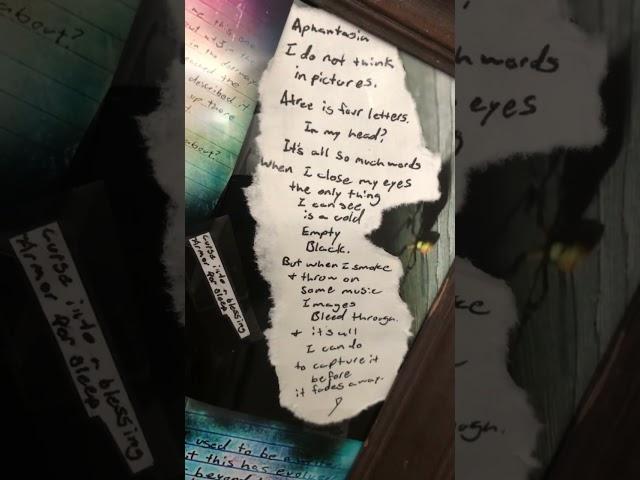 Aphantasia
I do not think
in pictures.
A tree is four letters.
In my head?
It's all so much words
When I close my eyes
the only thing
I can see
is a void
Empty
Black.
But when I smoke
+ throw on
some music
Images
Bleed through.
+ it's all
I can do
to capture it
before
it fades away.
curse into a blessing
Armor for sleep
about?
described it
up there
about?
used to be a
it this has evolved
beyond